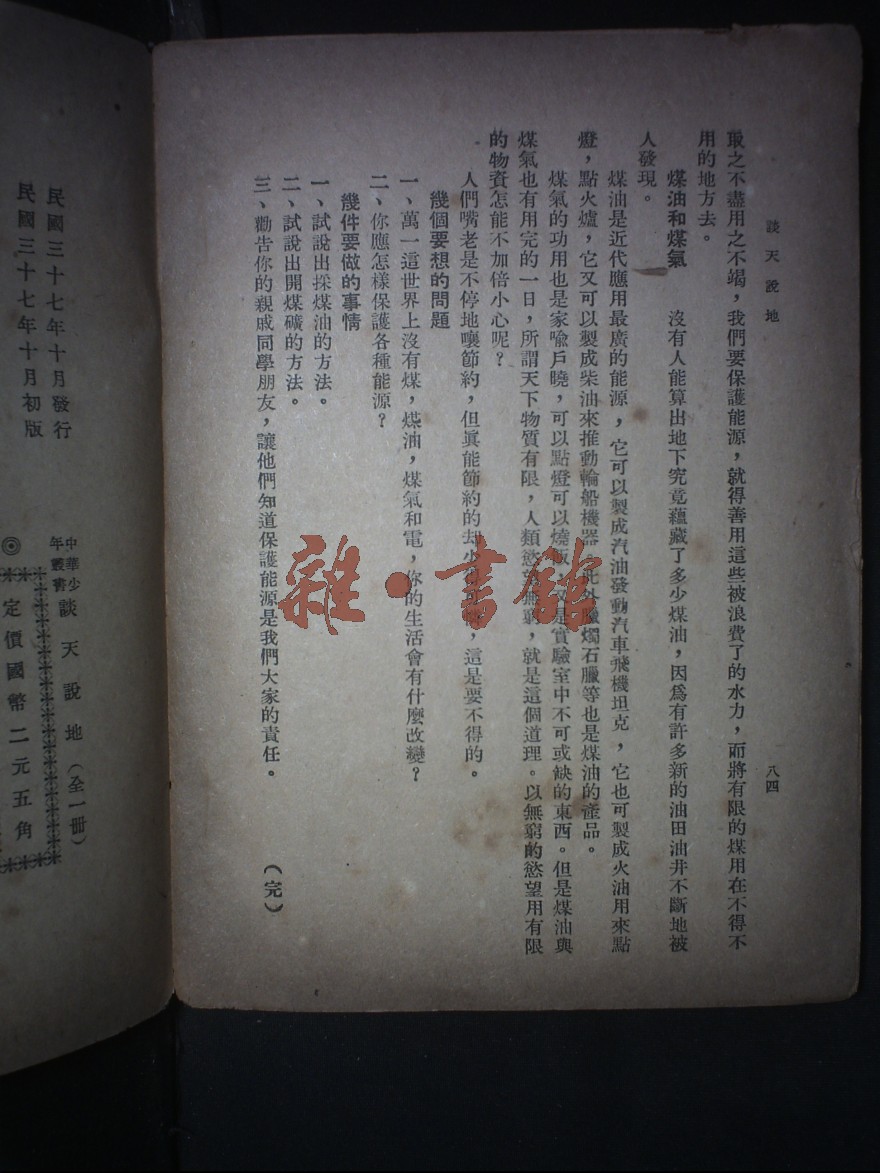 談天說地
八四
取之不盡用之不竭，我們要保護能源，就得善用這些被浪費了的水力，而將有限的煤用在不得不
用的地方去。
煤油和煤氣　沒有人能算出地下究竟蘊藏了多少煤油，因爲有許多新的油田油井不斷地被
人發現。
煤油是近代應用最廣的能源，它可以製成汽油發動汽車飛機坦克，它也可製成火油用來點
燈，點火爐，它又可以製成柴油來推動輪船機器。此外臘燭石臘等也是煤油的產品。
煤氣的功用也是家喩戶曉，可以點燈可以燒飯，又是實驗室中不可或缺的東西。但是煤油與
煤氣也有用完的一日，所謂天下物質有限，人類慾望無窮，就是這個道理。以無窮的慾望用有限
的物資怎能不加倍小心呢？
人們嘴老是不停地嚷節約，但眞能節約的却少，這是要不得的。
幾個要想的問題
一、萬一這世界上沒有煤，煤油，煤氣和電，你的生活會有什麼改變？
二、你應怎樣保護各種能源？
幾件要做的事情
一、試說出採煤油的方法。
二、試說出開煤礦的方法。
三、勸告你的親戚同學朋友，讓他們知道保護能源是我們大家的責任。
（完）
民國三十七年十月發行
民國三十七年十月初版
中華少年叢書
談天說地（全一冊）
◎定價國幣二元五角
雜·書館